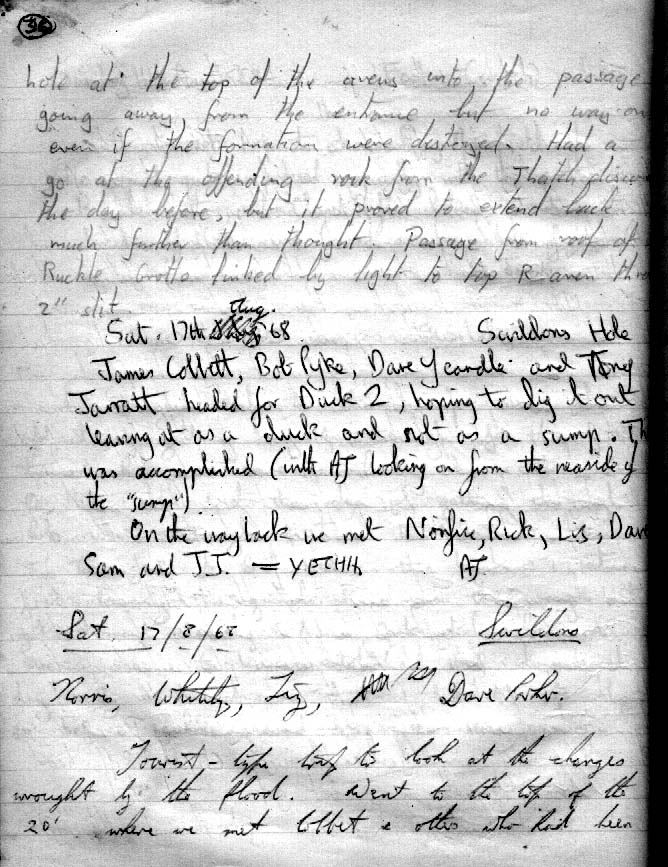 36
hole at the top of the avens into the passage
going away from the entrance, but no way on
even if the formation were destroyed. Had a
go at the offending rock from the Thatch
the day before, but it proved to extend back
much further than thought. Passage from roof of
Ruckle Grotto linked by light to top R aven
2" slit.
Aug.
Sat. 17th '68 Swildons Hole
James Collett, Bob Pyke, Dave Yeandle and Tony
Jarratt headed for Duck 2, hoping to dig it out
leaving it as a duck and not as a sump. Th
was accomplished (with AJ looking on from the nearside of
the "sump").
On the way back we met Rick, Lis, Dave
Sam and J.J. = YECHH AJ
Sat. 17/8/68 Swildons
Norris, Liz, Dave
Tourist - type trip to look at the changes
wrought by the flood. Went to the top of the
20' where we met Collett & others who had been